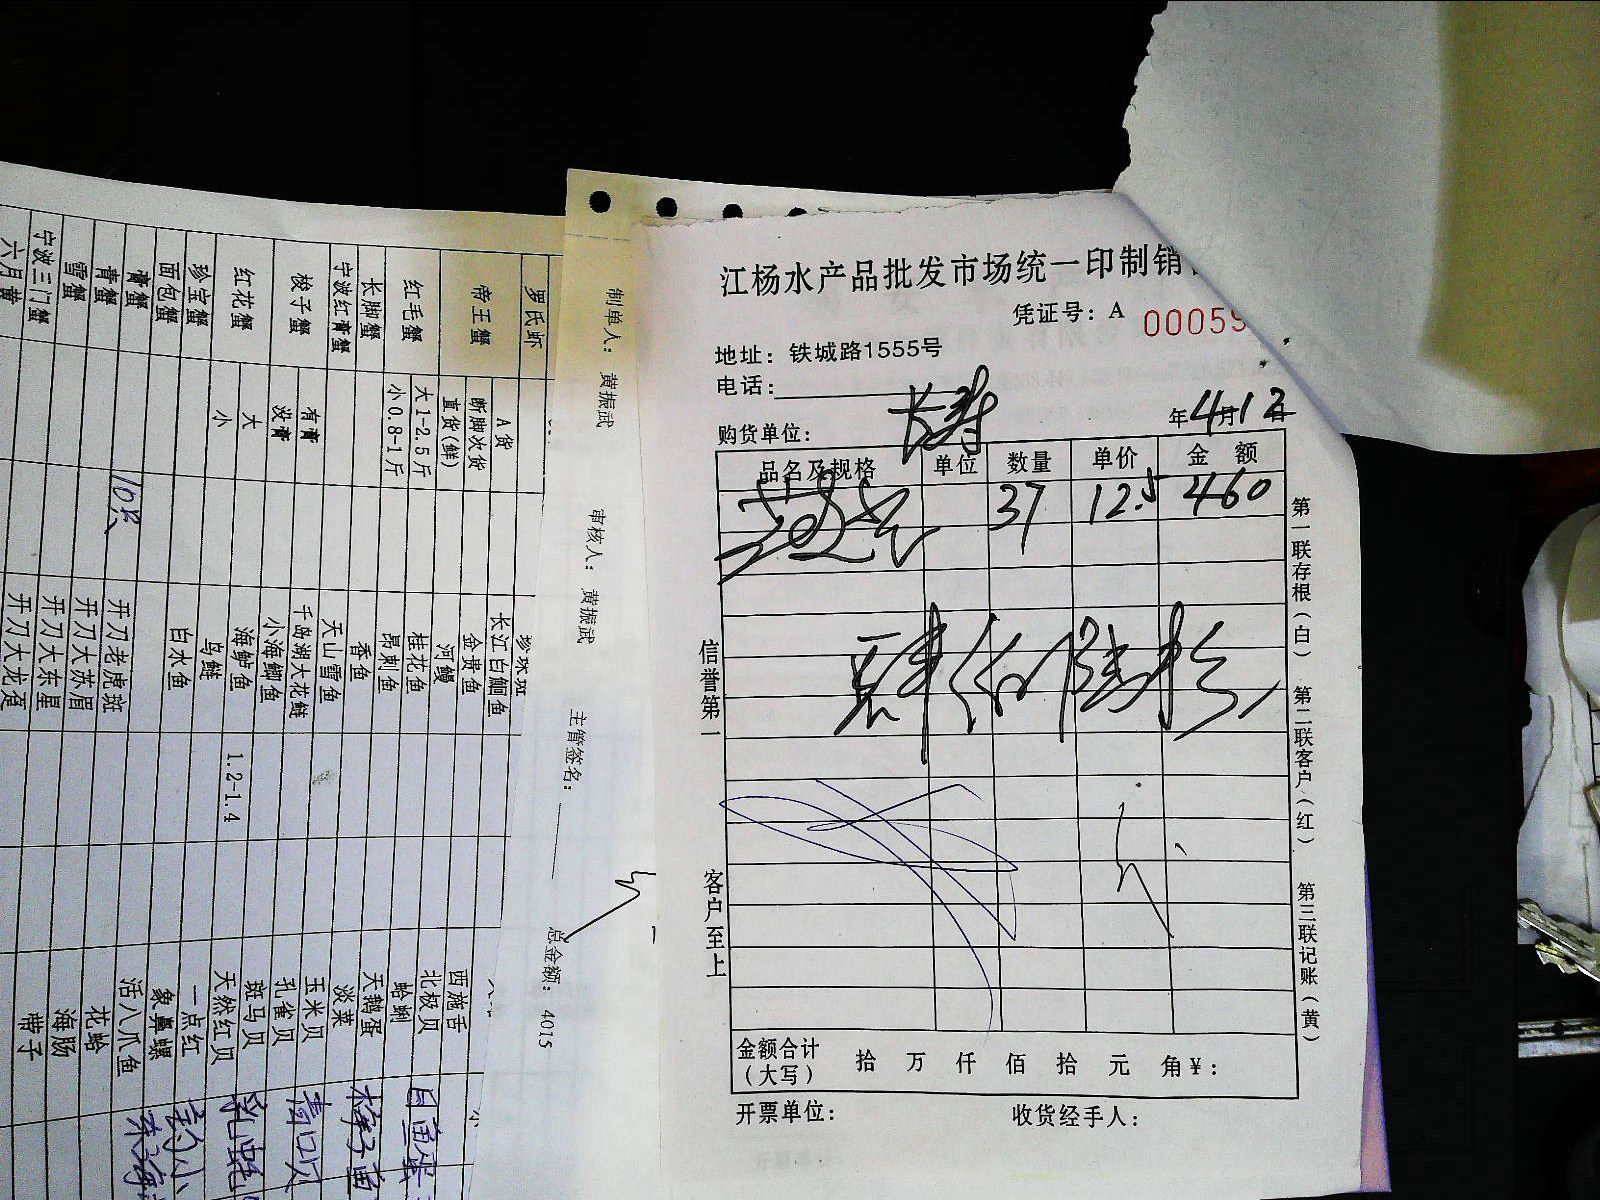 江杨水产品批发市场统一印制销
凭证号: A 00059
地址: 铁城路1555号
电话:
年4月12日
购货单位: 长寿
品名及规格 单位 数量 单价 金 额
37 12.5 460
肆佰陆拾
信誉第一 客户至上
第一联存根(白) 第二联客户(红) 第三联记账(黄)
金额合计(大写) 拾 万 仟 佰 拾 元 角 ¥:
开票单位: 收货经手人:
制单人: 黄振武 审核人: 黄振武 主管签名: 总金额: 4015
罗氏虾 珍珠斑
帝王蟹 A货 长江白鮰鱼 西施舌
断脚次货 金贵鱼 北极贝
直货(鲜) 河鳗 蛤蜊
红毛蟹 大1-2.5斤 桂花鱼 天鹅蛋
小0.8-1斤 昂刺鱼 淡菜
长脚蟹 香鱼 玉米贝
宁波红膏蟹 天山雪鱼 孔雀贝
梭子蟹 有膏 千岛湖大花鲢 斑马贝
没膏 小海鲫鱼 天然红贝
红花蟹 大 海鲈鱼 1.2-1.4 一点红
小 乌鲢 象鼻螺
珍宝蟹 白水鱼 活八爪鱼
面包蟹 花蛤
膏蟹 10只 开刀老虎斑 海肠
青蟹 开刀大苏眉 带子
雪蟹 开刀大东星
宁波三门蟹 开刀大龙趸
六月黄